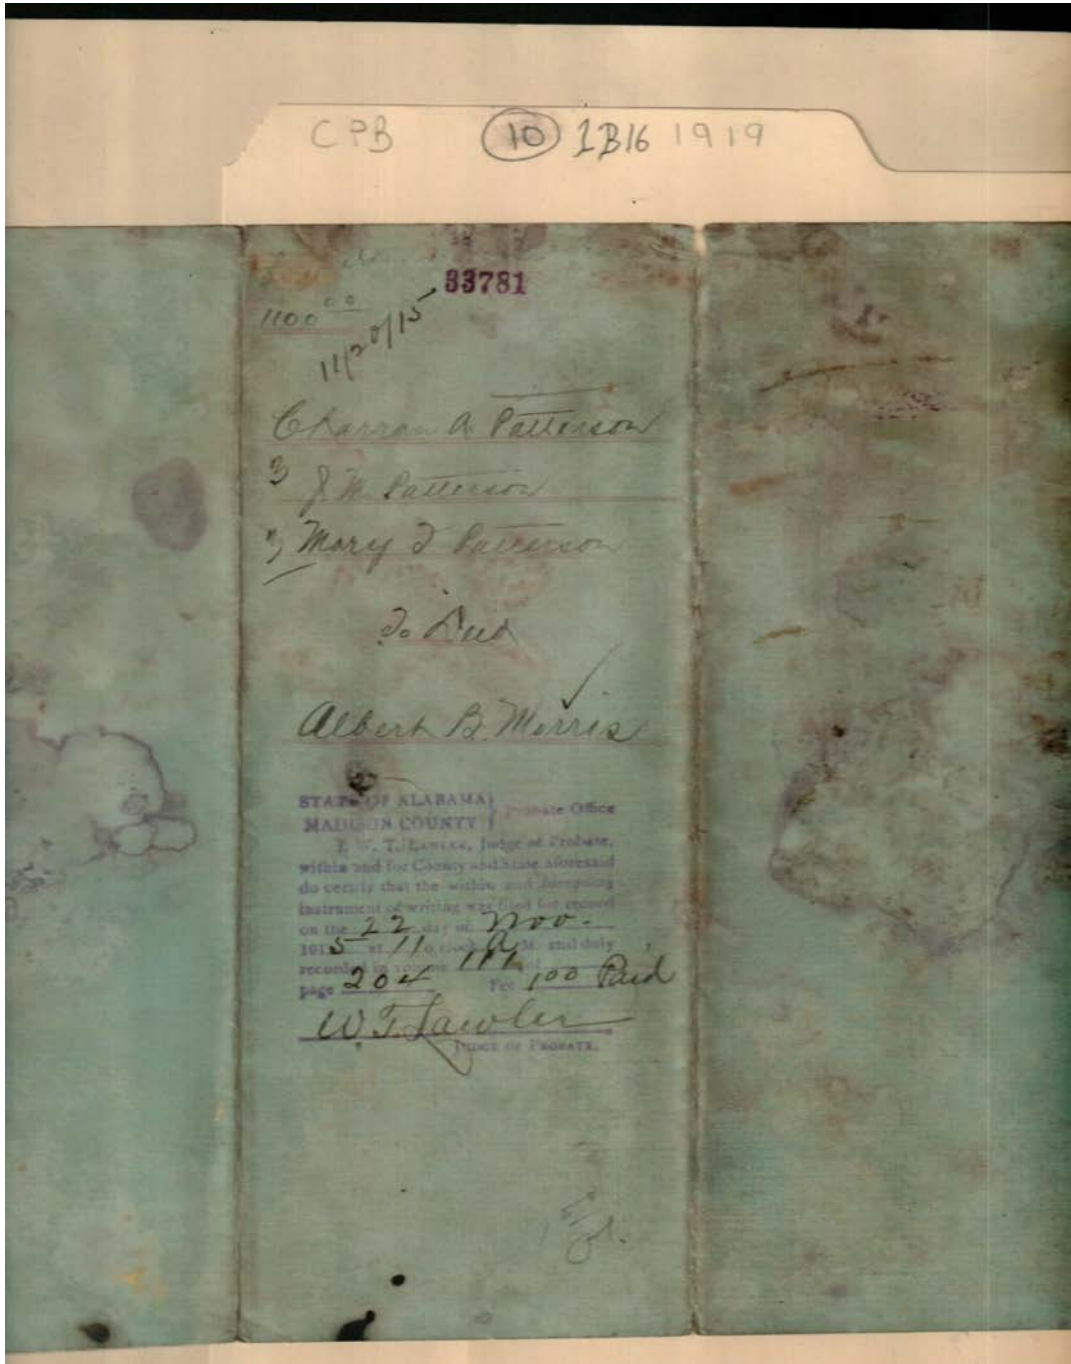 CPB 10 1B16 1919
33781
1100.00
11/20/15
A. Patterson
3 J. M. Patterson
3 Mary Patterson
To Deed
Albert B. Morris
STATE OF ALABAMA } Probate Office
MADISON COUNTY }
I, W. T. Lawler, Judge of Probate,
within and for County and State aforesaid
do certify that the within and foregoing
instrument of writing was filed for record
on the 22 day of Nov.
1915 at 11 o'clock A M. and duly
recorded in
page 204 Fee 1.00 Paid
W. T. Lawler
JUDGE OF PROBATE.